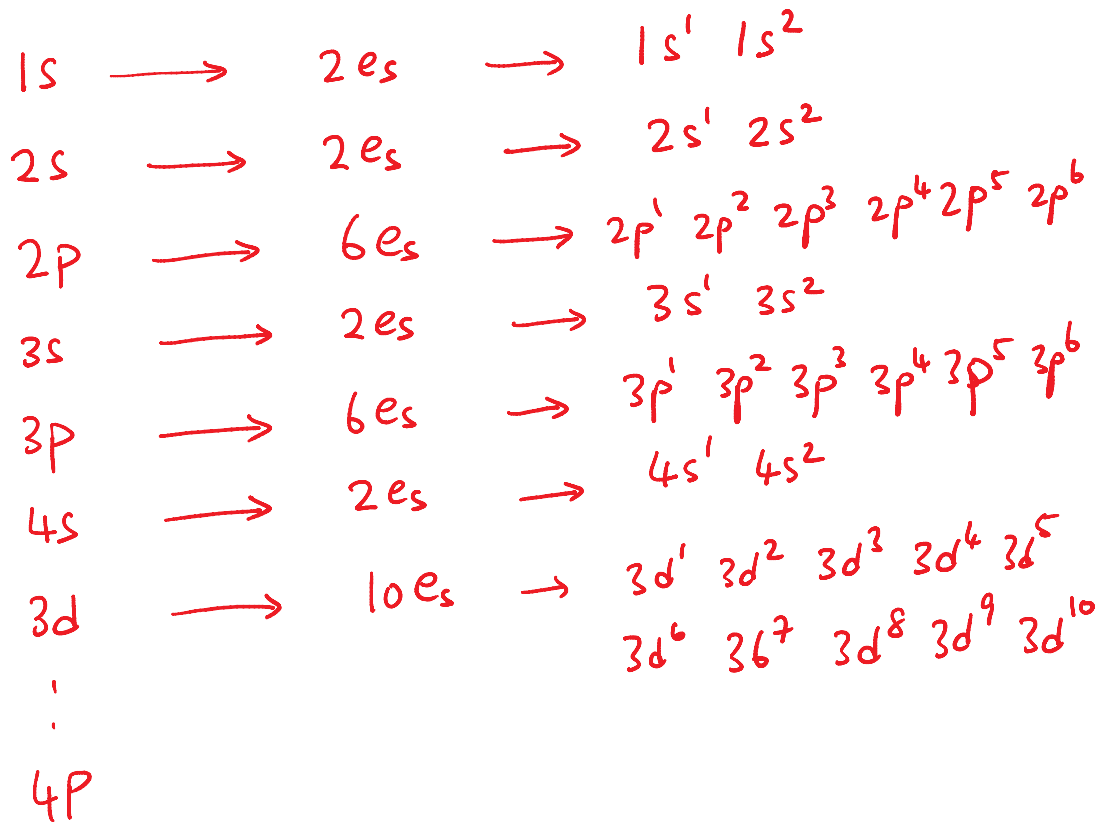 1s → 2es → 1s¹ 1s²
2s → 2es → 2s¹ 2s²
2p → 6es → 2p¹ 2p² 2p³ 2p⁴ 2p⁵ 2p⁶
3s → 2es → 3s¹ 3s²
3p → 6es → 3p¹ 3p² 3p³ 3p⁴ 3p⁵ 3p⁶
4s → 2es → 4s¹ 4s²
3d → 10es → 3d¹ 3d² 3d³ 3d⁴ 3d⁵
3d⁶ 36⁷ 3d⁸ 3d⁹ 3d¹⁰
⋮
4p